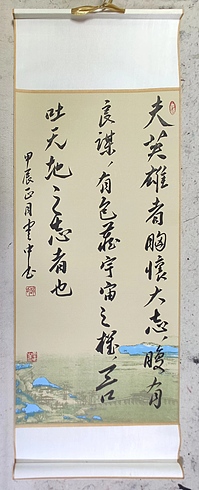 夫英雄者胸怀大志,腹有
良谋,有包藏宇宙之机
吐天地之志者也
甲辰正月